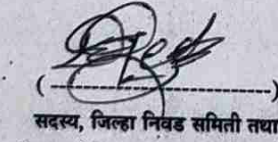 (----------------------)
सदस्य, जिल्हा निवड समिती तथा